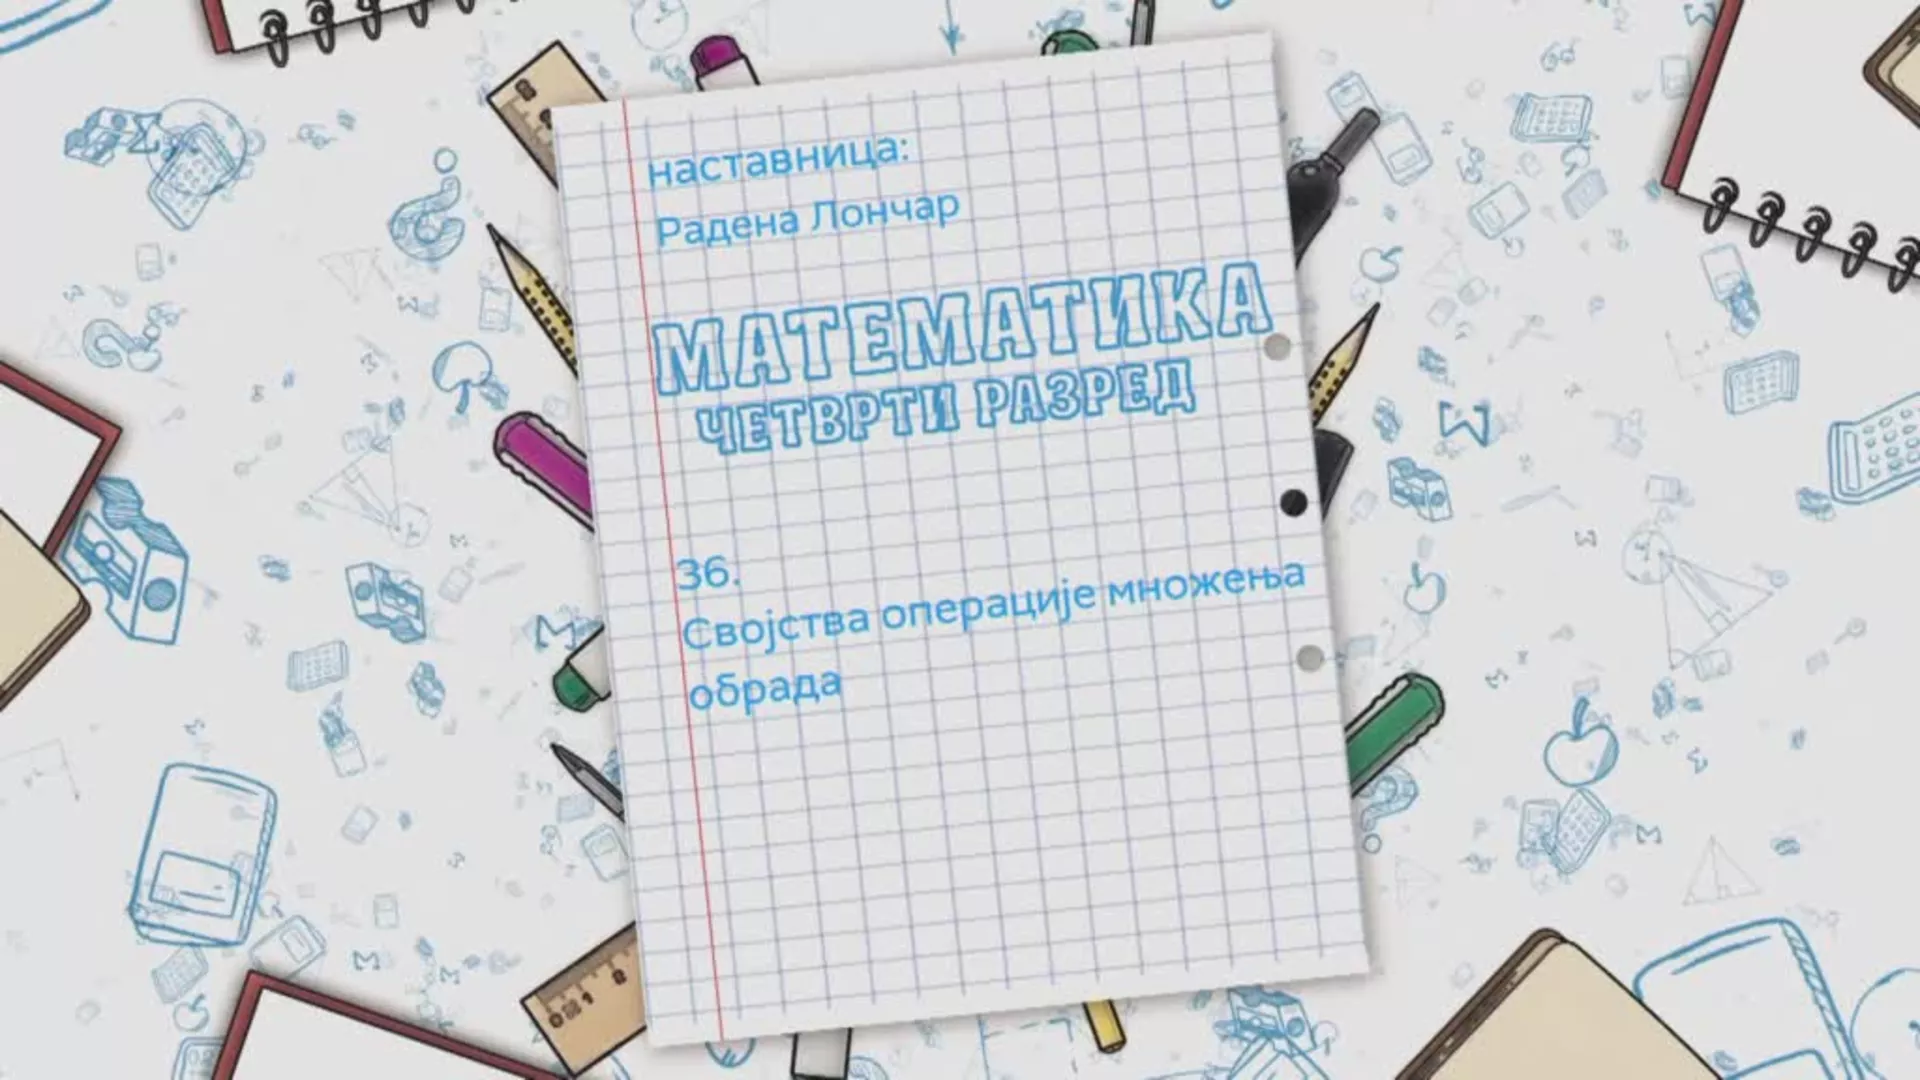 наставница:
Радена Лончар
МАТЕМАТИКА
ЧЕТВРТИ РАЗРЕД
36.
Својства операције множења
обрада